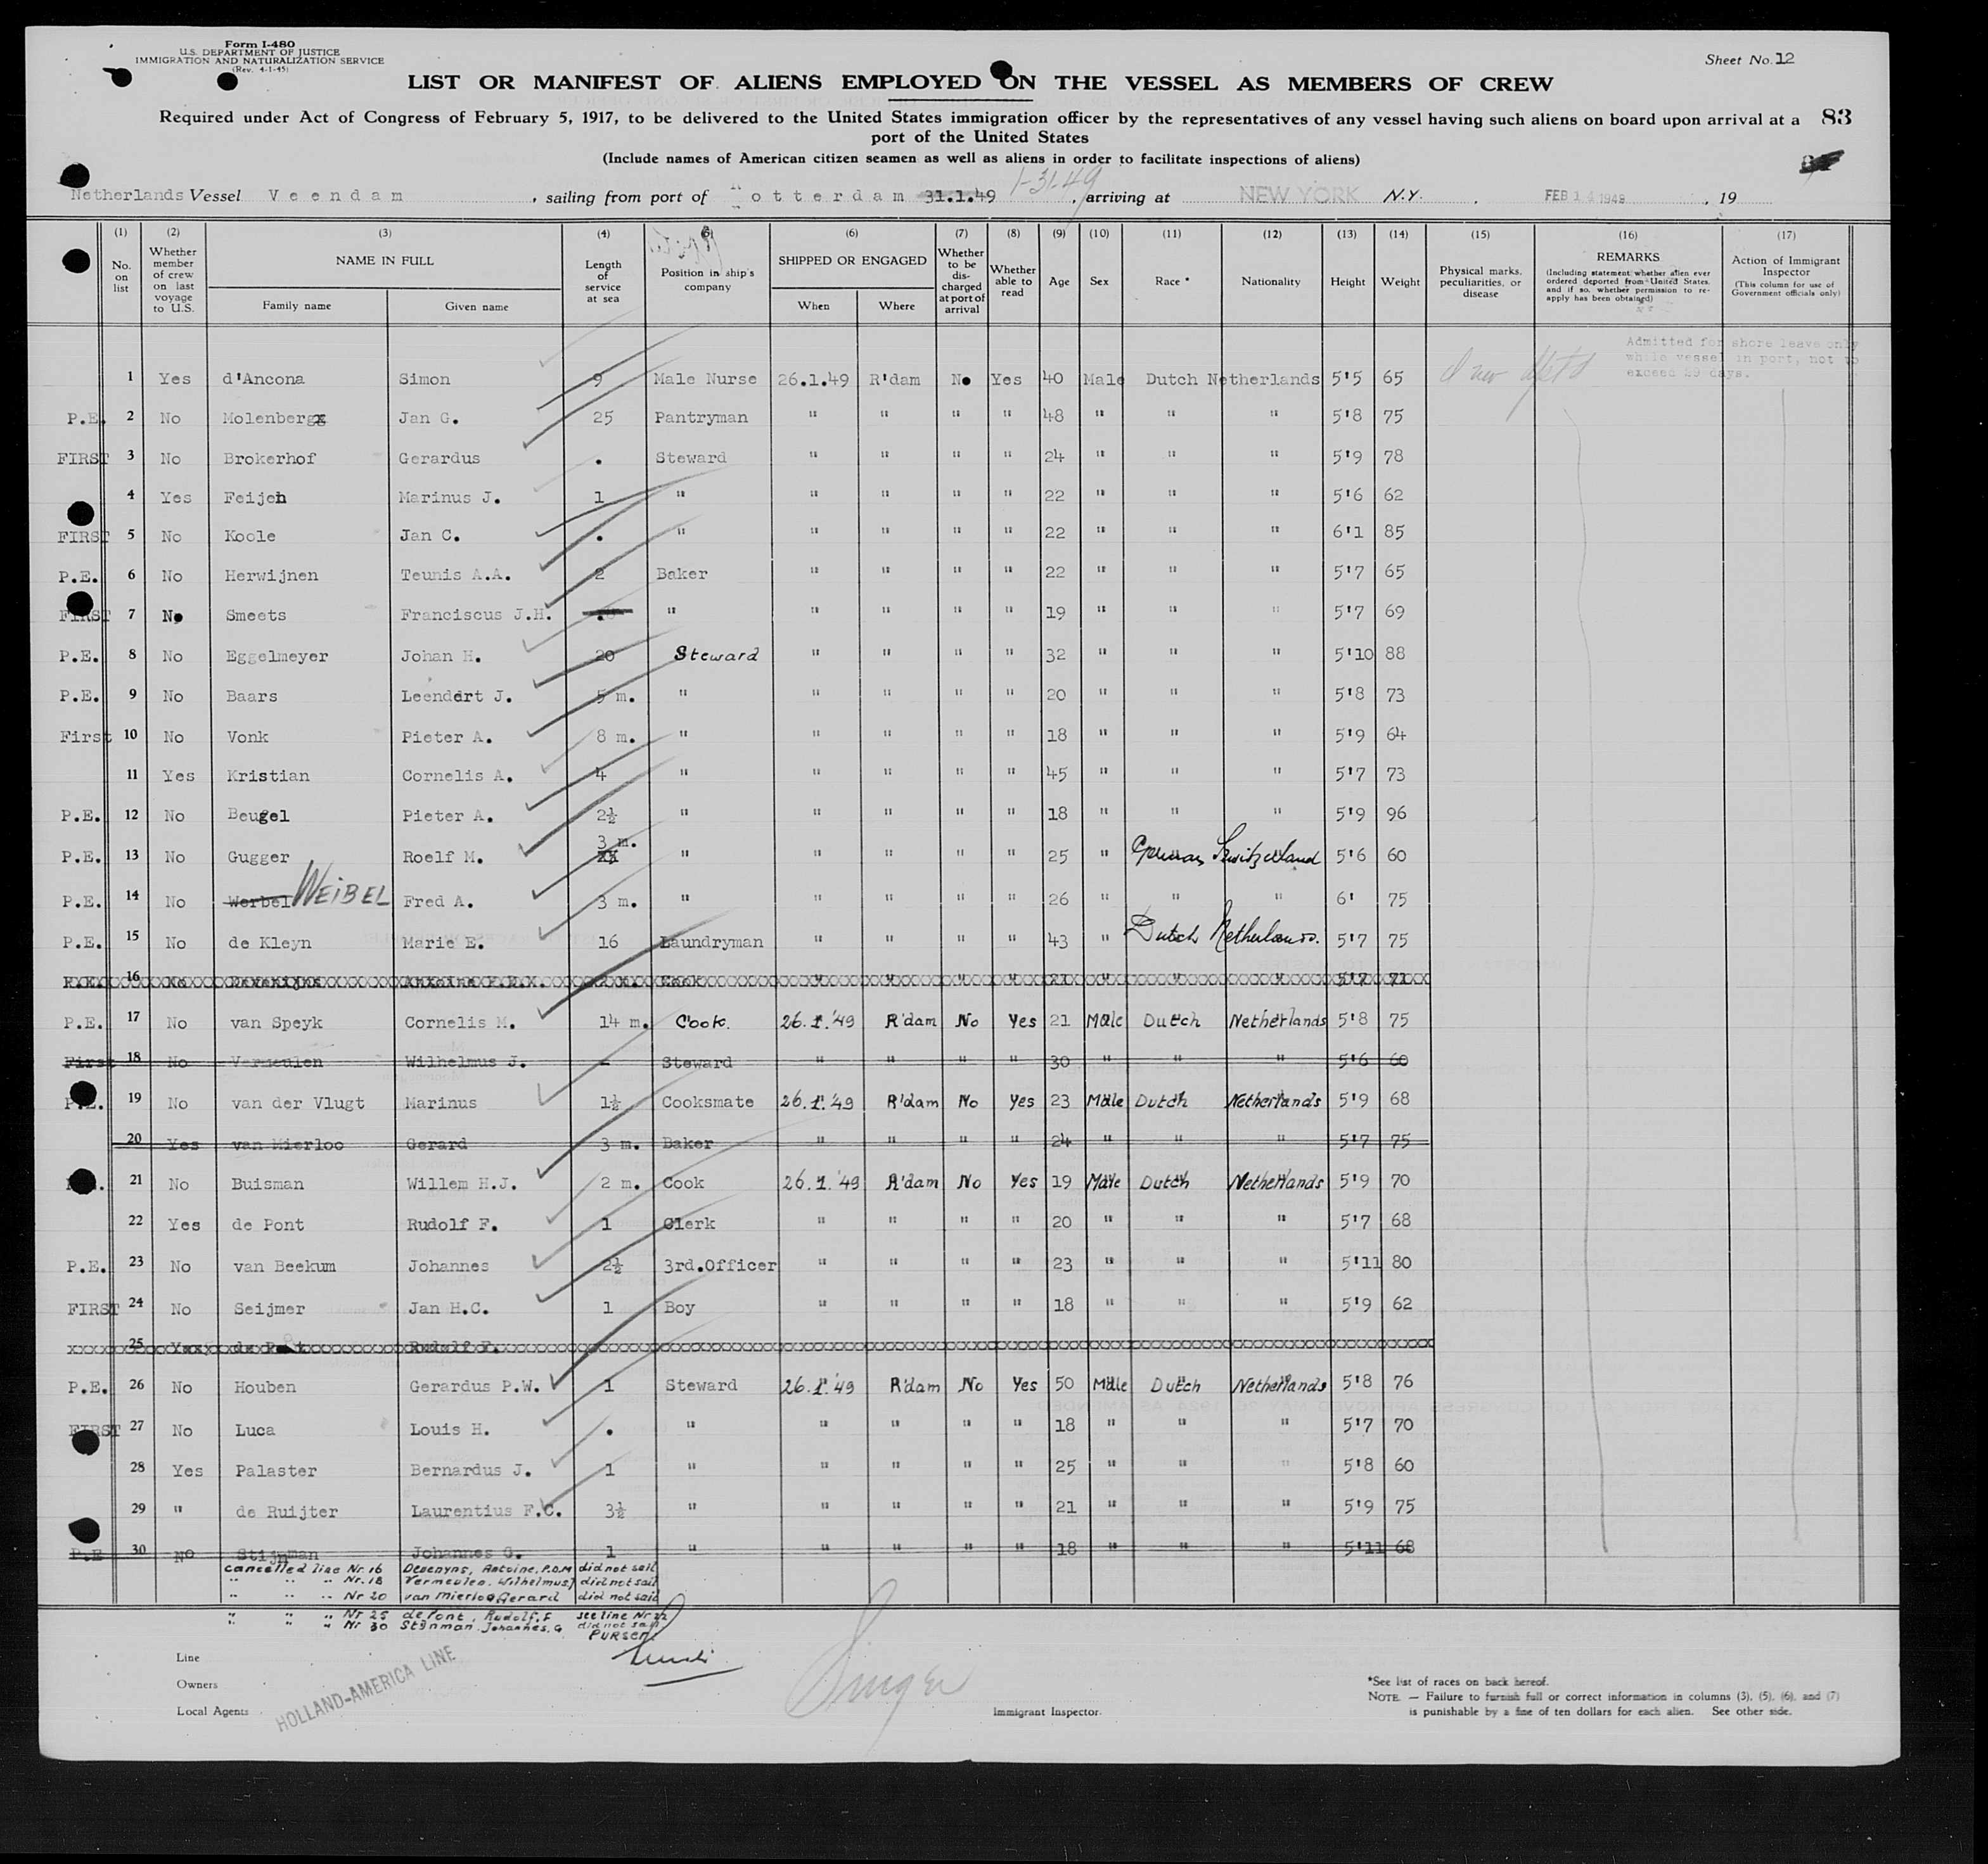 Form I-480
U.S. DEPARTMENT OF JUSTICE
IMMIGRATION AND NATURALIZATION SERVICE
(Rev. 4-1-45)
Sheet No. 12
LIST OR MANIFEST OF ALIENS EMPLOYED ON THE VESSEL AS MEMBERS OF CREW
Required under Act of Congress of February 5, 1917, to be delivered to the United States immigration officer by the representatives of any vessel having such aliens on board upon arrival at a 83
port of the United States
(Include names of American citizen seamen as well as aliens in order to facilitate inspections of aliens)
1-31-49
Netherlands Vessel Veendam, sailing from port of Rotterdam 31.1.49, arriving at NEW YORK N.Y., FEB 1949, 19
(1) (2) (3) (4) (5) (6) (7) (8) (9) (10) (11) (12) (13) (14) (15) (16) (17)
No. on list
Whether member of crew on last voyage to U.S.
NAME IN FULL
Family name
Given name
Length of service at sea
Position in ship's company
SHIPPED OR ENGAGED
When
Where
Whether to be discharged at port of arrival
Whether able to read
Age
Sex
Race *
Nationality
Height
Weight
Physical marks, peculiarities, or disease
REMARKS
(Including statement whether alien ever ordered deported from United States, and if so, whether permission to re-apply has been obtained)
Action of Immigrant Inspector
(This column for use of Government officials only)
Admitted for shore leave only
while vessel in port, not to
exceed 29 days.
1 Yes d'Ancona Simon 9 Male Nurse 26.1.49 R'dam No Yes 40 Male Dutch Netherlands 5'5 65
P.E. 2 No Molenberg Jan G. 25 Pantryman " " " " 48 " " " 5'8 75
FIRST 3 No Brokerhof Gerardus . Steward " " " " 24 " " " 5'9 78
4 Yes Feijen Marinus J. 1 " " " " " 22 " " " 5'6 62
FIRST 5 No Koole Jan C. . " " " " " 22 " " " 6'1 85
P.E. 6 No Herwijnen Teunis A.A. 2 Baker " " " " 22 " " " 5'7 65
FIRST 7 No Smeets Franciscus J.H. " " " " " 19 " " " 5'7 69
P.E. 8 No Eggelmeyer Johan H. 20 Steward " " " " 32 " " " 5'10 88
P.E. 9 No Baars Leendert J. 5 m. " " " " " 20 " " " 5'8 73
First 10 No Vonk Pieter A. 8 m. " " " " " 18 " " " 5'9 64
11 Yes Kristian Cornelis A. 4 " " " " " 45 " " " 5'7 73
P.E. 12 No Beugel Pieter A. 2½ " " " " " 18 " " " 5'9 96
P.E. 13 No Gugger Roelf M. 3 m. " " " " " 25 " German Switzerland 5'6 60
P.E. 14 No Werbel WEIBEL Fred A. 3 m. " " " " " 26 " " " 6' 75
P.E. 15 No de Kleyn Marie E. 16 Laundryman " " " " 43 " Dutch Netherlands. 5'7 75
P.E. 16 No Cook " " " " 21 " " " 5'7 71
P.E. 17 No van Speyk Cornelis M. 14 m. Cook. 26.1.'49 R'dam No Yes 21 Male Dutch Netherlands 5'8 75
First 18 No Vermeulen Wilhelmus J. - Steward " " " " 30 " " " 5'6 60
P.E. 19 No van der Vlugt Marinus 1½ Cooksmate 26.1.'49 R'dam No Yes 23 Male Dutch Netherlands 5'9 68
20 Yes van Mierloo Gerard 3 m. Baker " " " " 24 " " " 5'7 75
21 No Buisman Willem H.J. 2 m. Cook 26.1.'49 R'dam No Yes 19 Male Dutch Netherlands 5'9 70
22 Yes de Pont Rudolf F. 1 Clerk " " " " 20 " " " 5'7 68
P.E. 23 No van Beekum Johannes 2½ 3rd.Officer " " " " 23 " " " 5'11 80
FIRST 24 No Seijmer Jan H.C. 1 Boy " " " " 18 " " " 5'9 62
25 Yes de Pont Rudolf F.
P.E. 26 No Houben Gerardus P.W. 1 Steward 26.1.'49 R'dam No Yes 50 Male Dutch Netherlands 5'8 76
FIRST 27 No Luca Louis H. . " " " " " 18 " " " 5'7 70
28 Yes Palaster Bernardus J. 1 " " " " " 25 " " " 5'8 60
29 " de Ruijter Laurentius F.C. 3½ " " " " " 21 " " " 5'9 75
P.E 30 No Stijnman Johannes G. 1 " " " " " 18 " " " 5'11 68
cancelled line Nr 16 Devenyns, Antoine, P.D.M did not sail
" " " Nr. 18 Vermeulen. Wilhelmus J did not sail
" " " Nr 20 van Mierloo Gerard did not said
" " " Nr 25 de Pont, Rudolf. F see line Nr 22
" " " Nr 30 Stijnman. Johannes. G did not sail
PURSER
Line
Owners
Local Agents
HOLLAND-AMERICA LINE
Immigrant Inspector.
*See list of races on back hereof.
NOTE. — Failure to furnish full or correct information in columns (3), (5), (6), and (7)
is punishable by a fine of ten dollars for each alien. See other side.